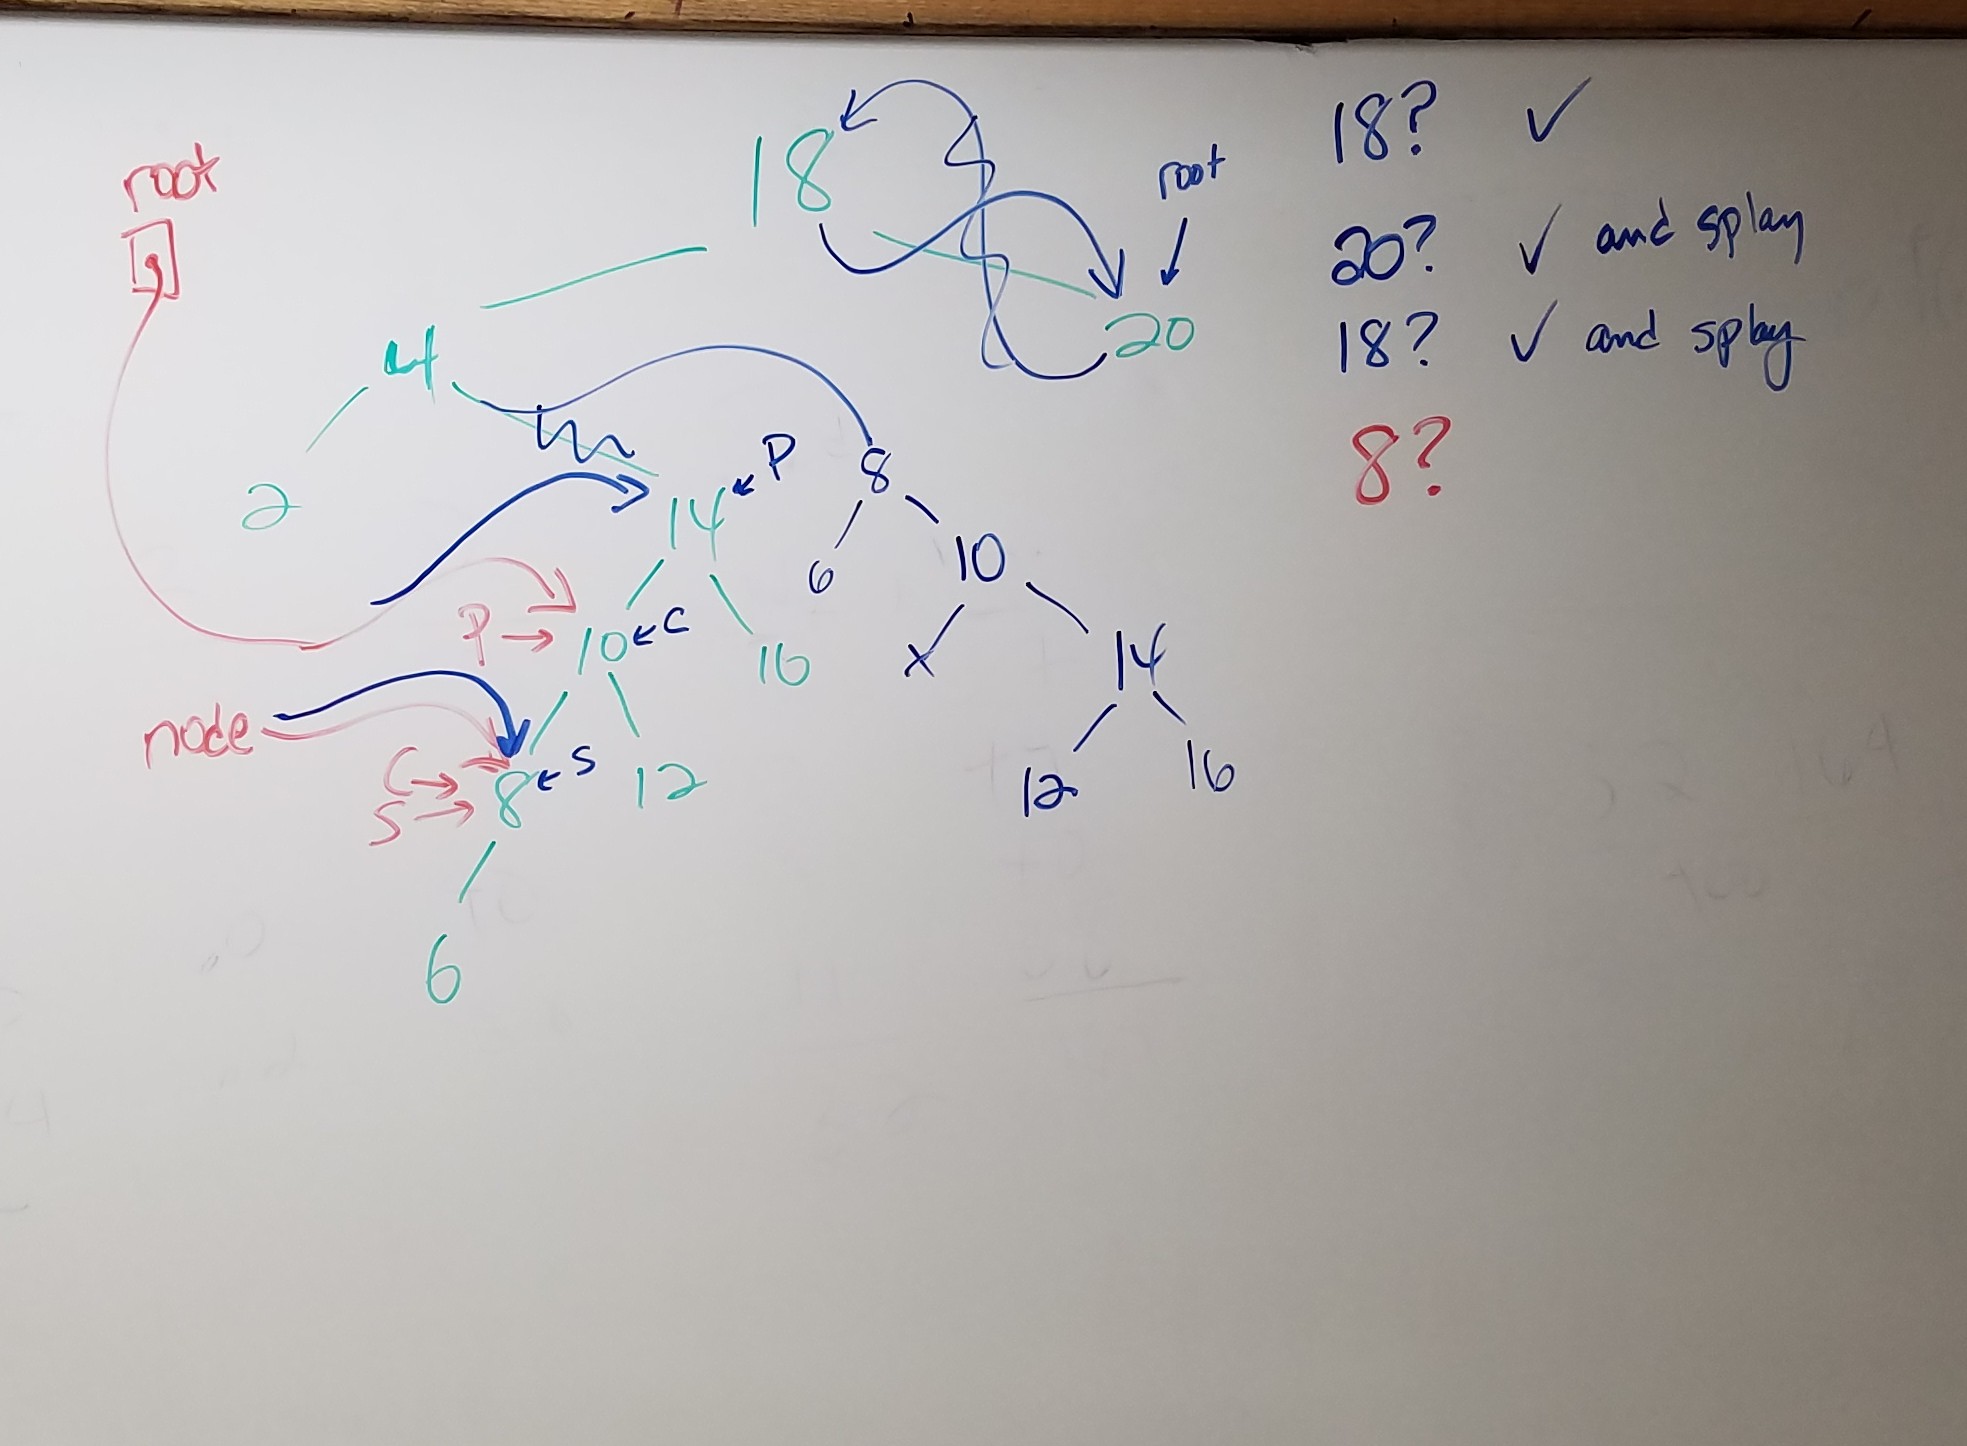 18? ✓
20? ✓ and splay
18? ✓ and splay
8?
root
18
root
20
4
2
14
P
8
6
10
x
14
12
16
P
10
C
16
node
C
S
8
S
12
6